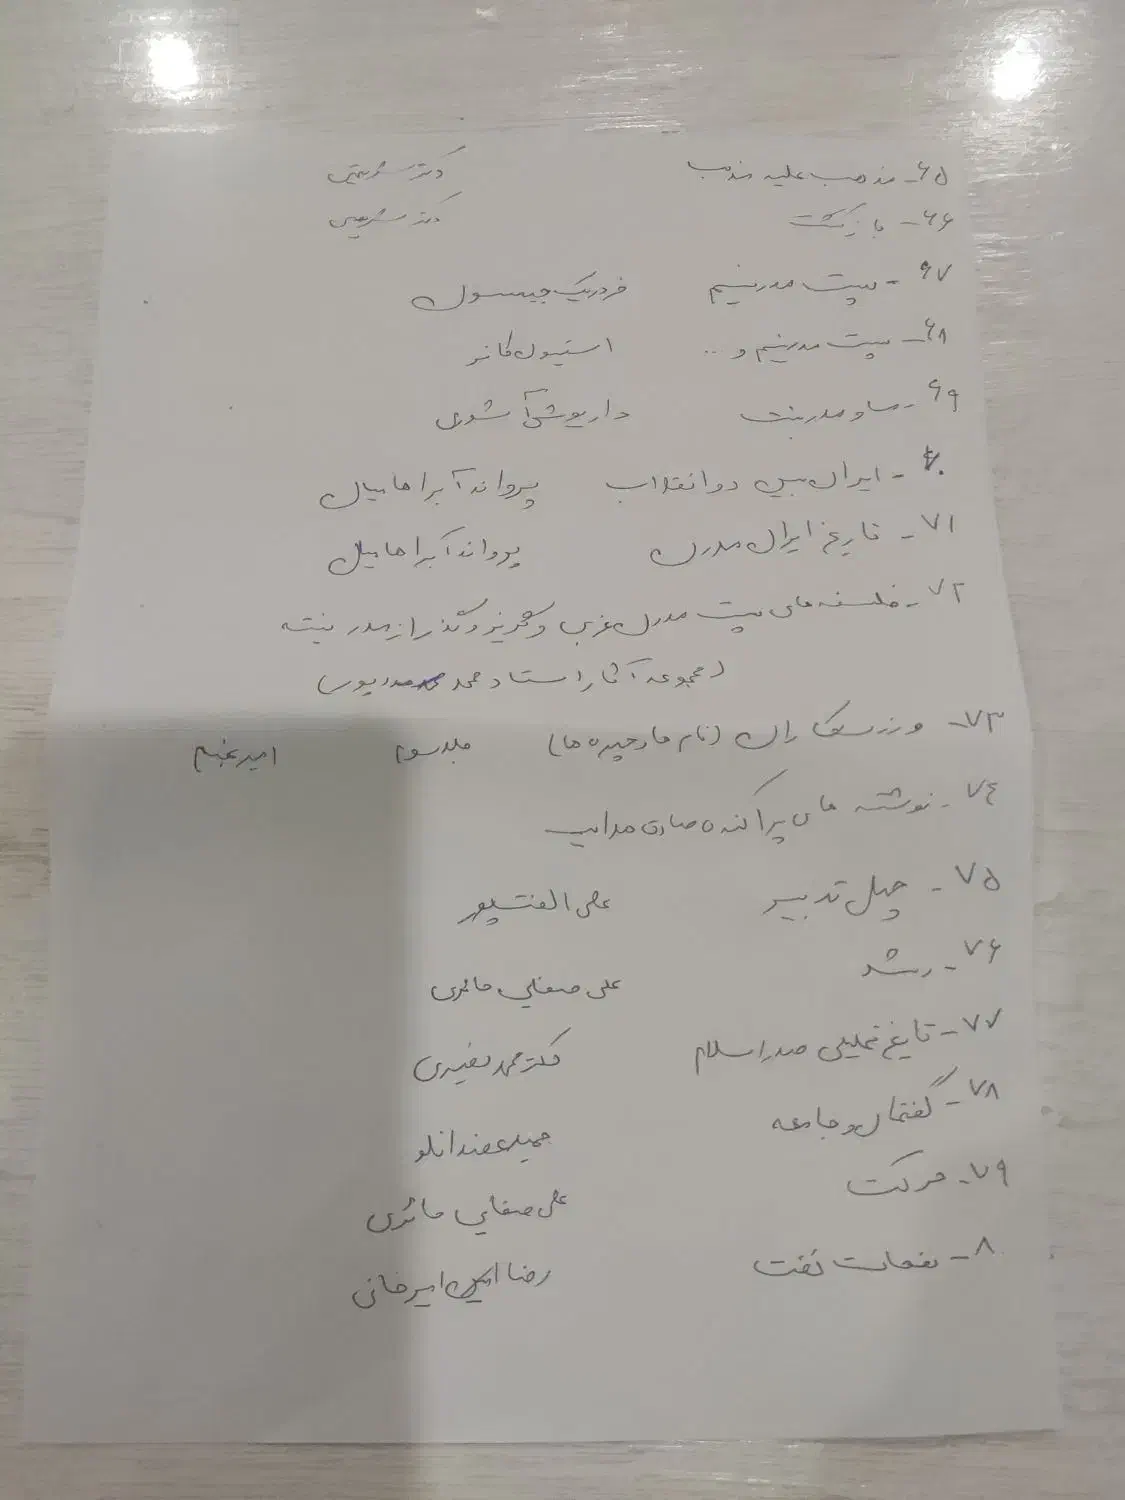 ۶۵- مذهب علیه مذهب دکتر شریعتی
۶۶- بازگشت دکتر شریعتی
۶۷- پست مدرنیسم فردریک جیمسون
۶۸- پست مدرنیسم و ... استیون کانر
۶۹- ما و مدرنیت داریوش آشوری
۷۰- ایران بین دو انقلاب یرواند آبراهامیان
۷۱- تاریخ ایران مدرن یرواند آبراهامیان
۷۲- فلسفه های پست مدرن غربی و گریز و گذر از مدرنیته
(مجموعه آثار استاد محمد مددپور)
۷۳- ورزشکاران (نام ها و چهره ها) جلد سوم امید نجم
۷۴- نوشته های پراکنده صادق هدایت
۷۵- چهل تدبیر علی الفت پور
۷۶- رشد علی صفایی حائری
۷۷- تاریخ تحلیلی صدر اسلام دکتر محمد نصیری
۷۸- گفتمان و جامعه حمید عضدانلو
۷۹- حرکت علی صفایی حائری
۸- نفحات نفت رضا امیرخانی